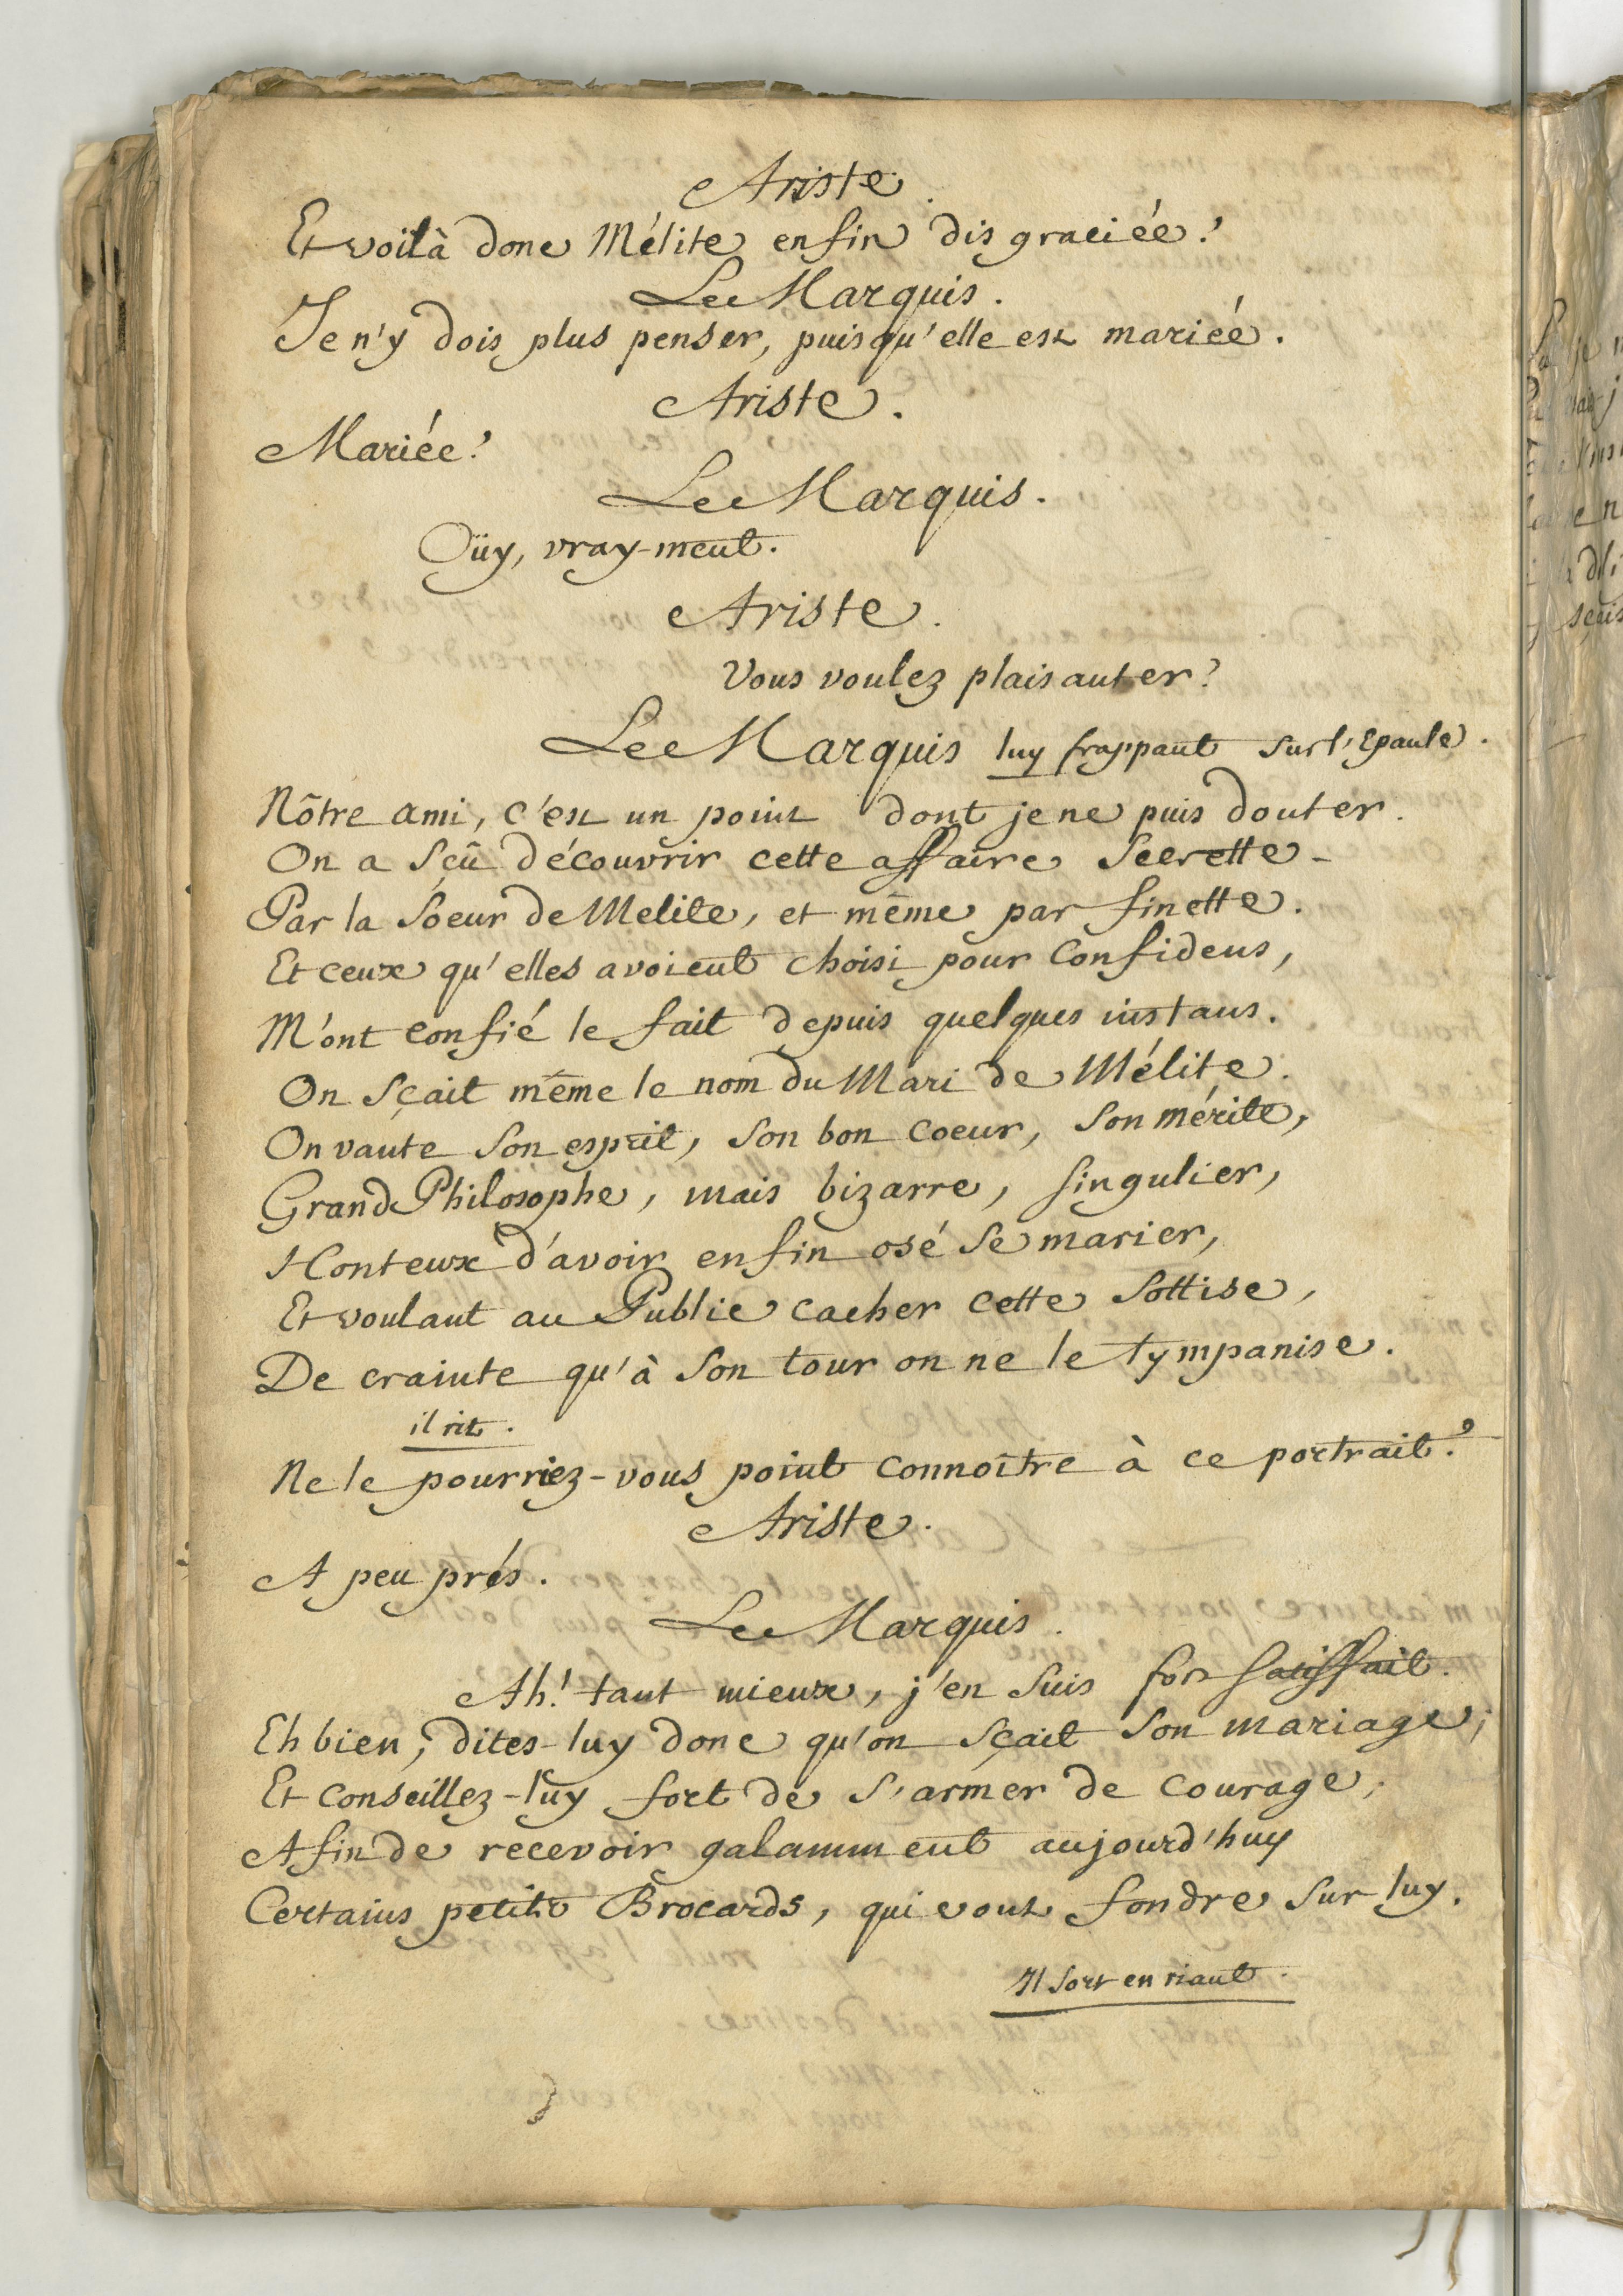 Ariste.
Et voilà donc Mélite enfin disgraciée?
Le Marquis.
Je n'y dois plus penser, puisqu'elle est mariée.
Ariste.
Mariée?
Le Marquis.
Oüy, vray-ment.
Ariste.
Vous voulez plaisanter?
Le Marquis luy frappant sur l'Epaule.
Nôtre ami, c'est un point dont je ne puis douter.
On a sçû découvrir cette affaire secrette
Par la soeur de Melite, et même par finette.
Et ceux qu'elles avoient choisi pour Confidens,
M'ont confié le fait depuis quelques instans.
On sçait même le nom du Mari de Mélite.
On vante son esprit, son bon coeur, son mérite,
Grand Philosophe, mais bizarre, singulier,
Honteux d'avoir enfin osé se marier,
Et voulant au Public cacher cette sottise,
De crainte qu'à son tour on ne le tympanise.
il rit.
Ne le pourriez-vous point connoître à ce portrait?
Ariste.
A peu prés.
Le Marquis.
Ah! tant mieux, j'en suis fort satisfait.
Eh bien, dites-luy donc qu'on sçait son mariage;
Et conseillez-luy fort de s'armer de courage,
Afin de recevoir galamment aujourd'huy
Certains petits Brocards, qui vont fondre sur luy.
Il sort en riant.